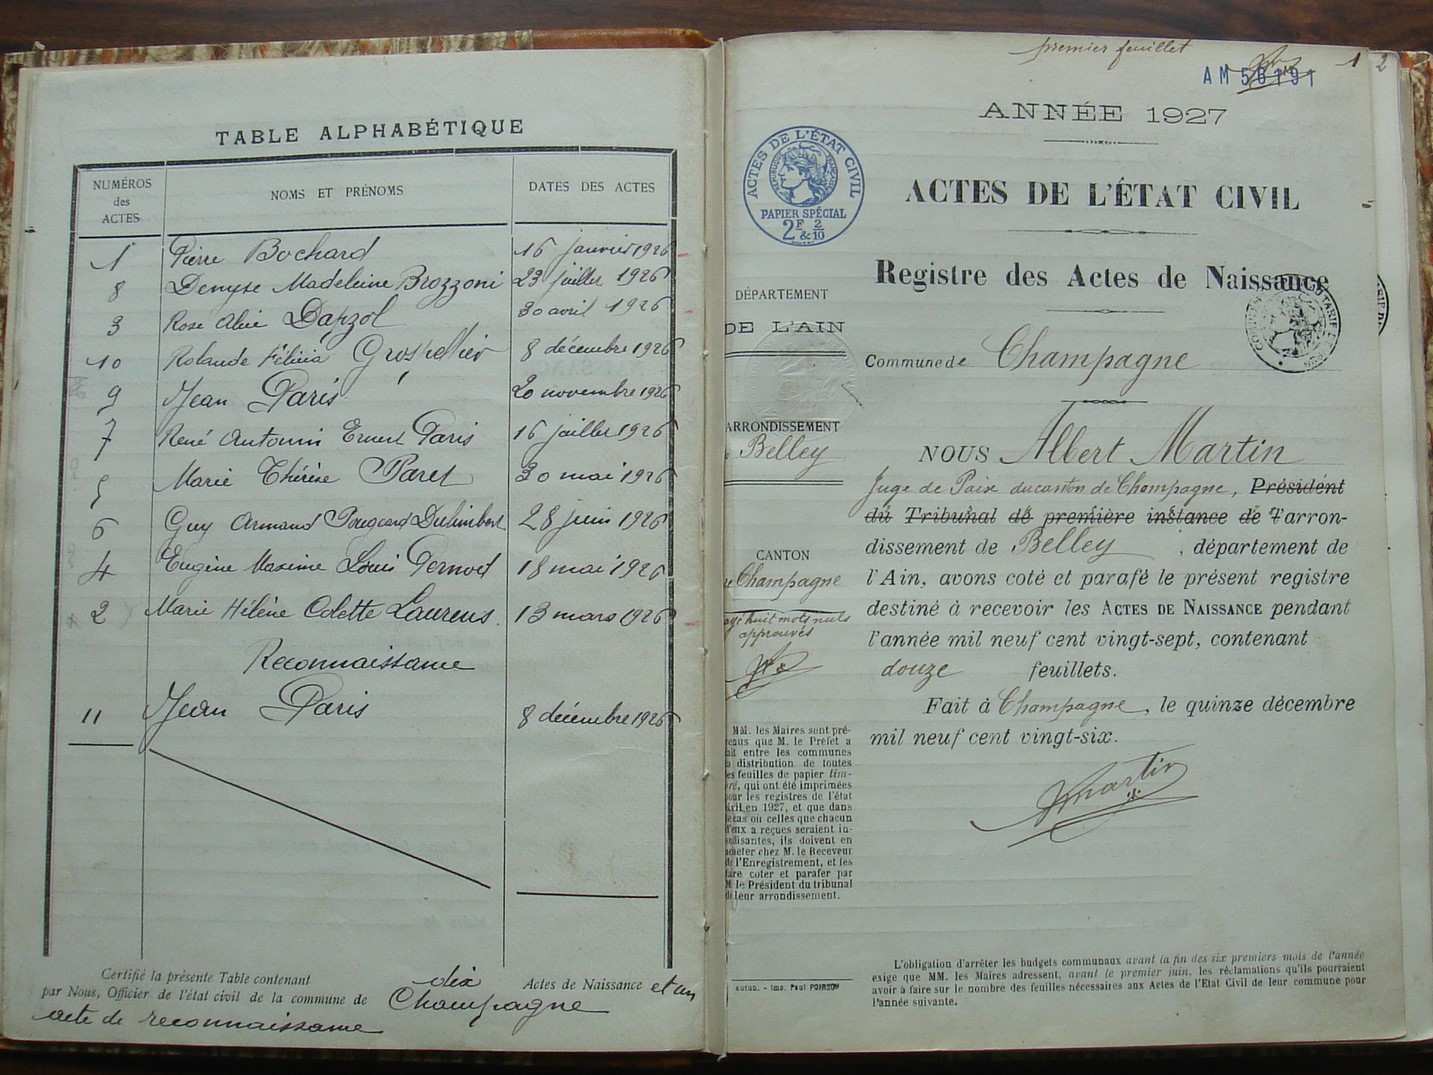 TABLE ALPHABÉTIQUE
NUMÉROS des ACTES NOMS ET PRÉNOMS DATES DES ACTES
1 Pierre Bochard 16 janvier 1926
8 Denyse Madeleine Brozzoni 23 juillet 1926
3 Rose Alice 30 avril 1926
10 Rolande Félicia 8 décembre 1926
9 Jean Paris 20 novembre 1926
7 René Antonin Ernest Paris 16 juillet 1926
5 Marie Thérèse Paret 30 mai 1926
6 Guy Armand 28 juin 1926
4 Eugène Maxime Louis Pernod 18 mai 1926
2 Marie Hélène Colette Laurens. 13 mars 1926
Reconnaissance
11 Jean Paris 8 décembre 1926
Certifié la présente Table contenant dix Actes de Naissance et un
par Nous, Officier de l'état civil de la commune de Champagne
acte de reconnaissance
premier feuillet 1 2
AM 56191
ANNÉE 1927
ACTES DE L'ÉTAT CIVIL
PAPIER SPÉCIAL
2F 2
& 10
ACTES DE L'ÉTAT CIVIL
Registre des Actes de Naissance
DÉPARTEMENT
DE L'AIN
Commune de Champagne
ARRONDISSEMENT
Belley
NOUS Albert Martin
Juge de Paix du canton de Champagne, Président
du Tribunal de première instance de l'arron-
dissement de Belley, département de
CANTON
Champagne
l'Ain, avons coté et parafé le présent registre
destiné à recevoir les ACTES DE NAISSANCE pendant
huit mots nuls
approuvés
l'année mil neuf cent vingt-sept, contenant
douze feuillets.
Fait à Champagne, le quinze décembre
mil neuf cent vingt-six.
AMartin
MM. les Maires sont pré-
venus que M. le Préfet a
fait entre les communes
la distribution de toutes
les feuilles de papier tim-
bré, qui ont été imprimées
pour les registres de l'état
civil en 1927, et que dans
le cas où celles que chacun
d'eux a reçues seraient in-
suffisantes, ils doivent en
acheter chez M. le Receveur
de l'Enregistrement, et les
faire coter et parafer par
M le Président du tribunal
de leur arrondissement.
- Imp. Paul POIRSON
L'obligation d'arrêter les budgets communaux avant la fin des six premiers mois de l'année
exige que MM. les Maires adressent, avant le premier juin, les réclamations qu'ils pourraient
avoir à faire sur le nombre des feuilles nécessaires aux Actes de l'Etat Civil de leur commune pour
l'année suivante.